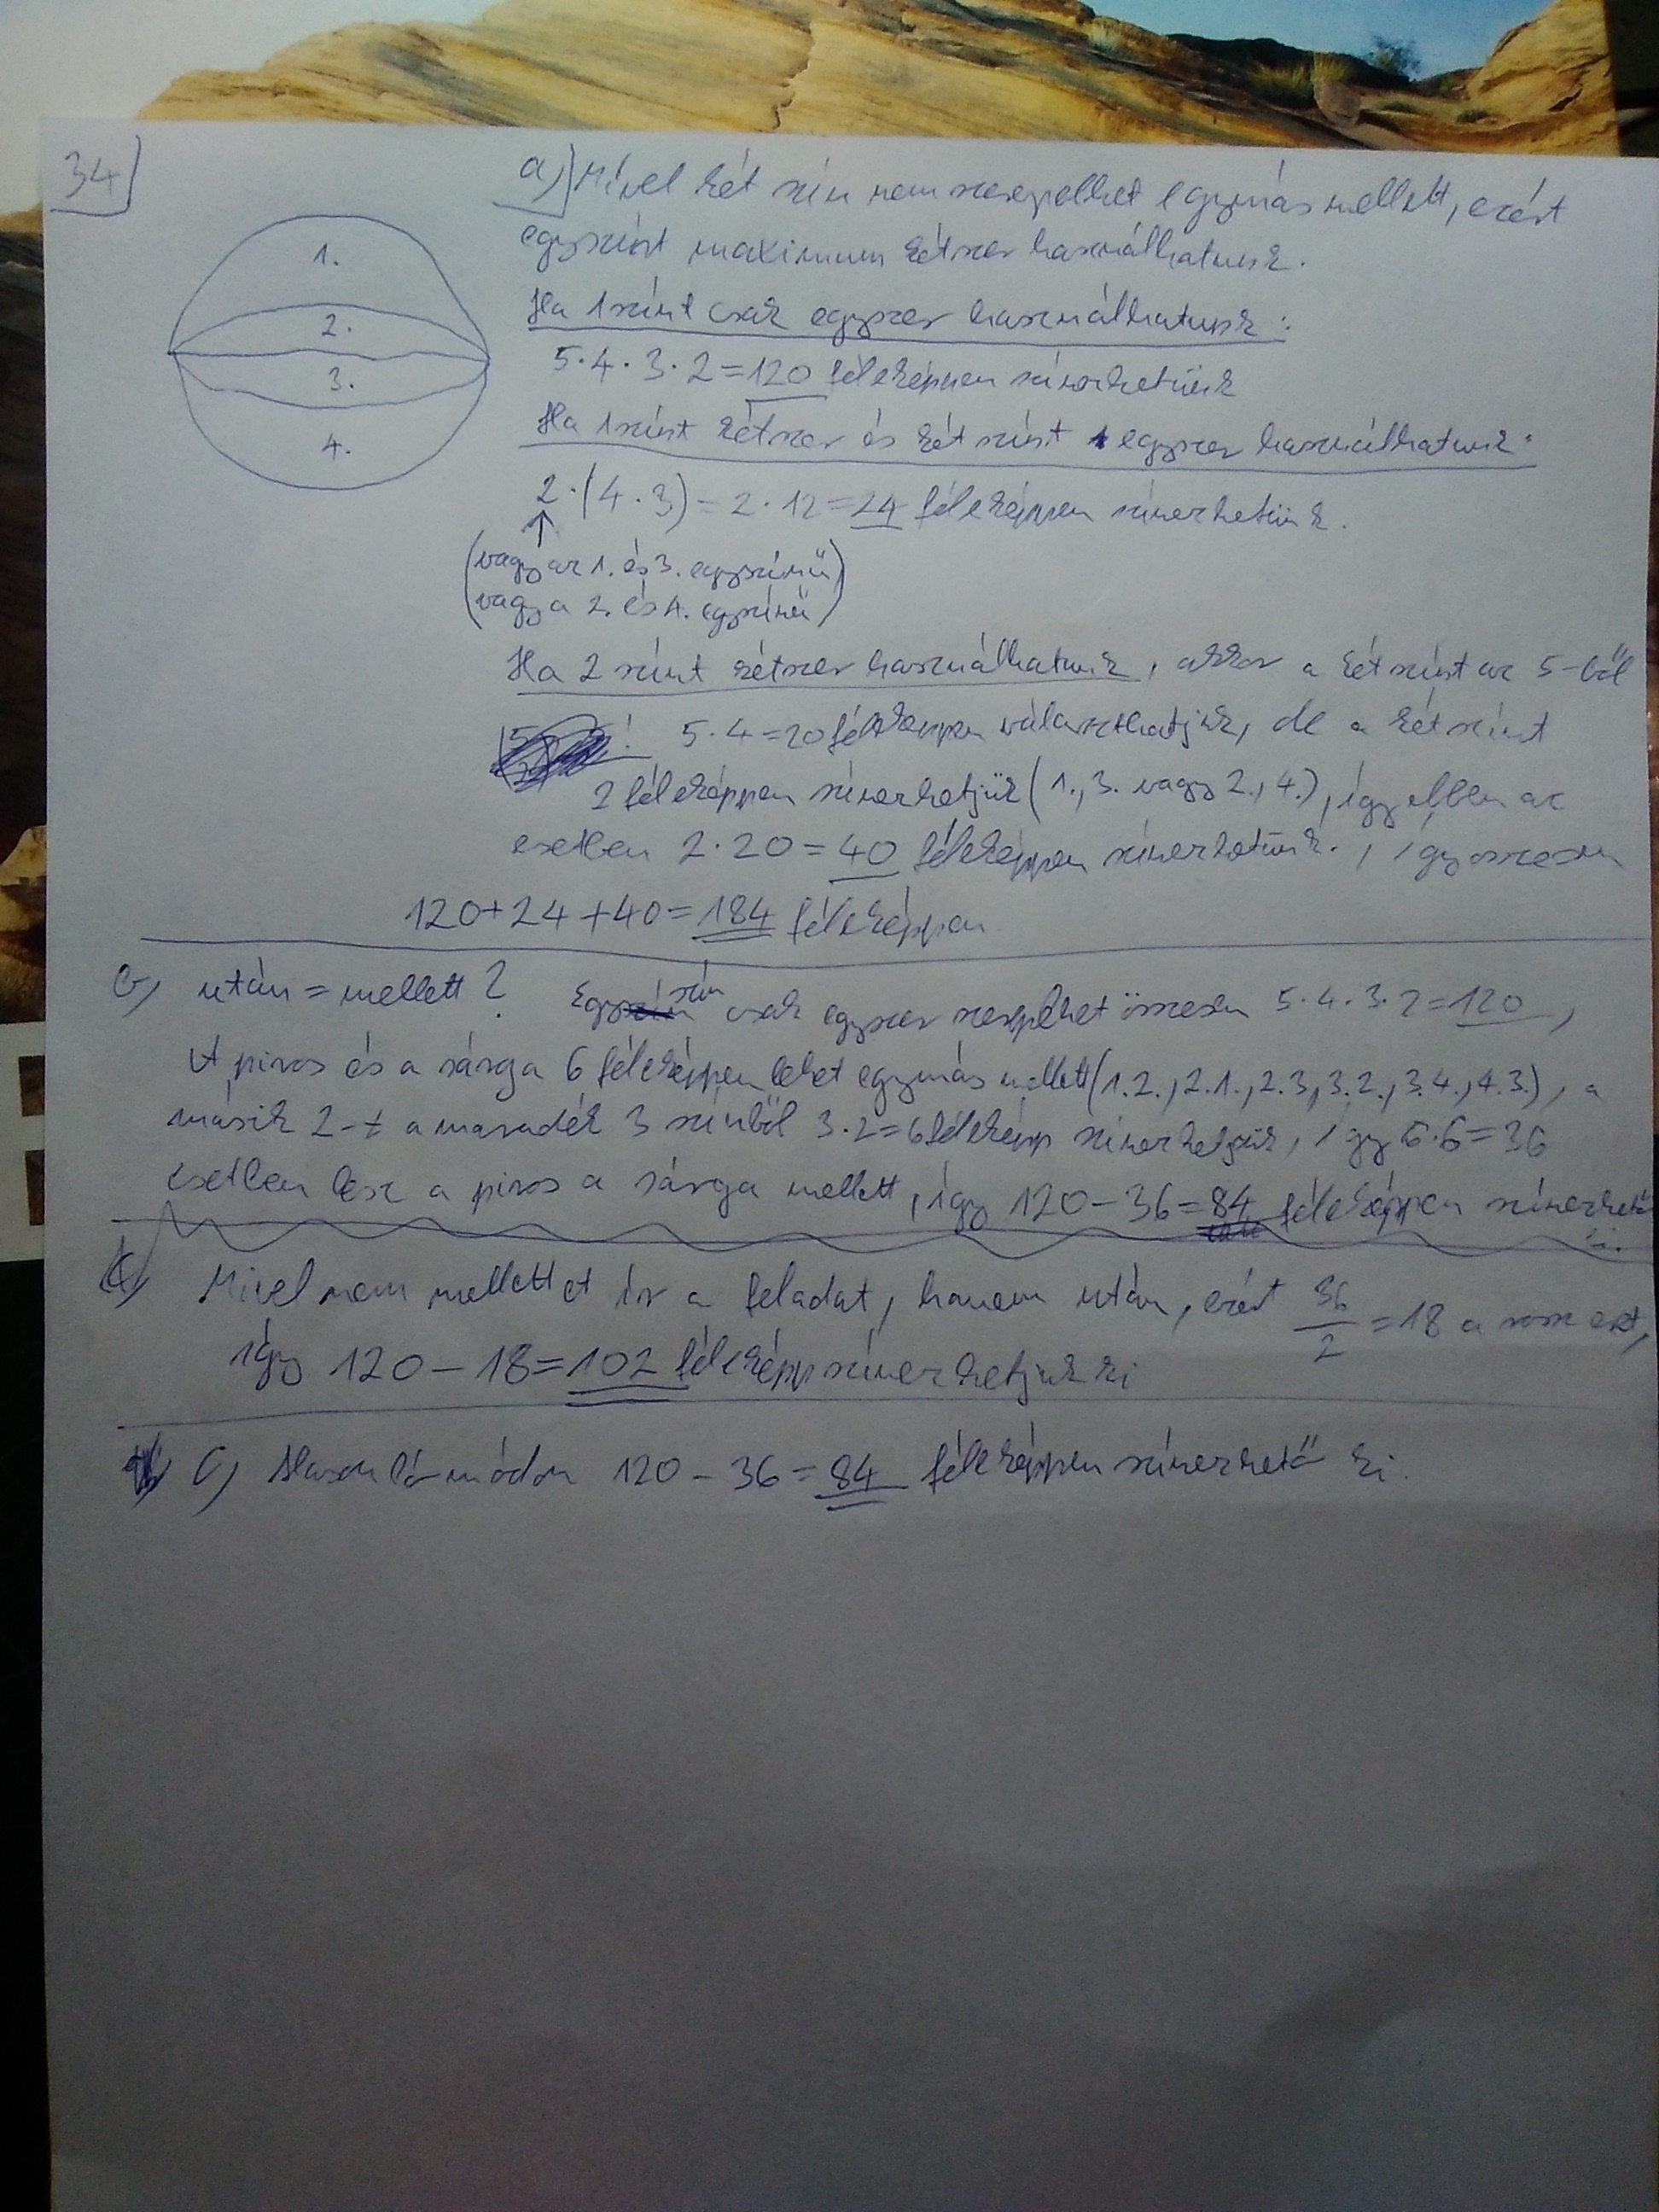 34
1.
2.
3.
4.
a) Mivel két szín nem szerepelhet egymás mellett, ezért
egyszínt maximum kétszer használhatunk.
Ha 1 színt csak egyszer használhatunk:
5·4·3·2=120 féleképpen színezhetünk
Ha 1 színt kétszer és két színt egyszer használhatunk:
2·(4·3)=2·12=24 féleképpen színezhetünk.
(vagy az 1. és 3. egyszínű)
(vagy a 2. és 4. egyszínű)
Ha 2 színt kétszer használhatunk, akkor a két színt az 5-ből
5·4=20 féleképpen választhatjuk, de a két színt
2 féleképpen színezhetjük (1., 3. vagy 2., 4.), így ebben az
esetben 2·20=40 féleképpen színezhetünk., így összesen
120+24+40=184 féleképpen.
b) után=mellett? Egy szín csak egyszer szerepelhet összesen 5·4·3·2=120,
A piros és a sárga 6 féleképpen lehet egymás mellett (1.2., 2.1., 2.3, 3.2., 3.4., 4.3.), a
másik 2-t a maradék 3 színből 3·2=6 féleképp színezhetjük, így 6·6=36
esetben lesz a piros a sárga mellett, így 120-36=84 féleképpen színezhető
Mivel nem mellettet ír a feladat, hanem után, ezért 36/2=18 a rossz eset,
így 120-18=102 féleképp színezhetjük ki
c) Hasonló módon 120-36=84 féleképpen színezhető ki.